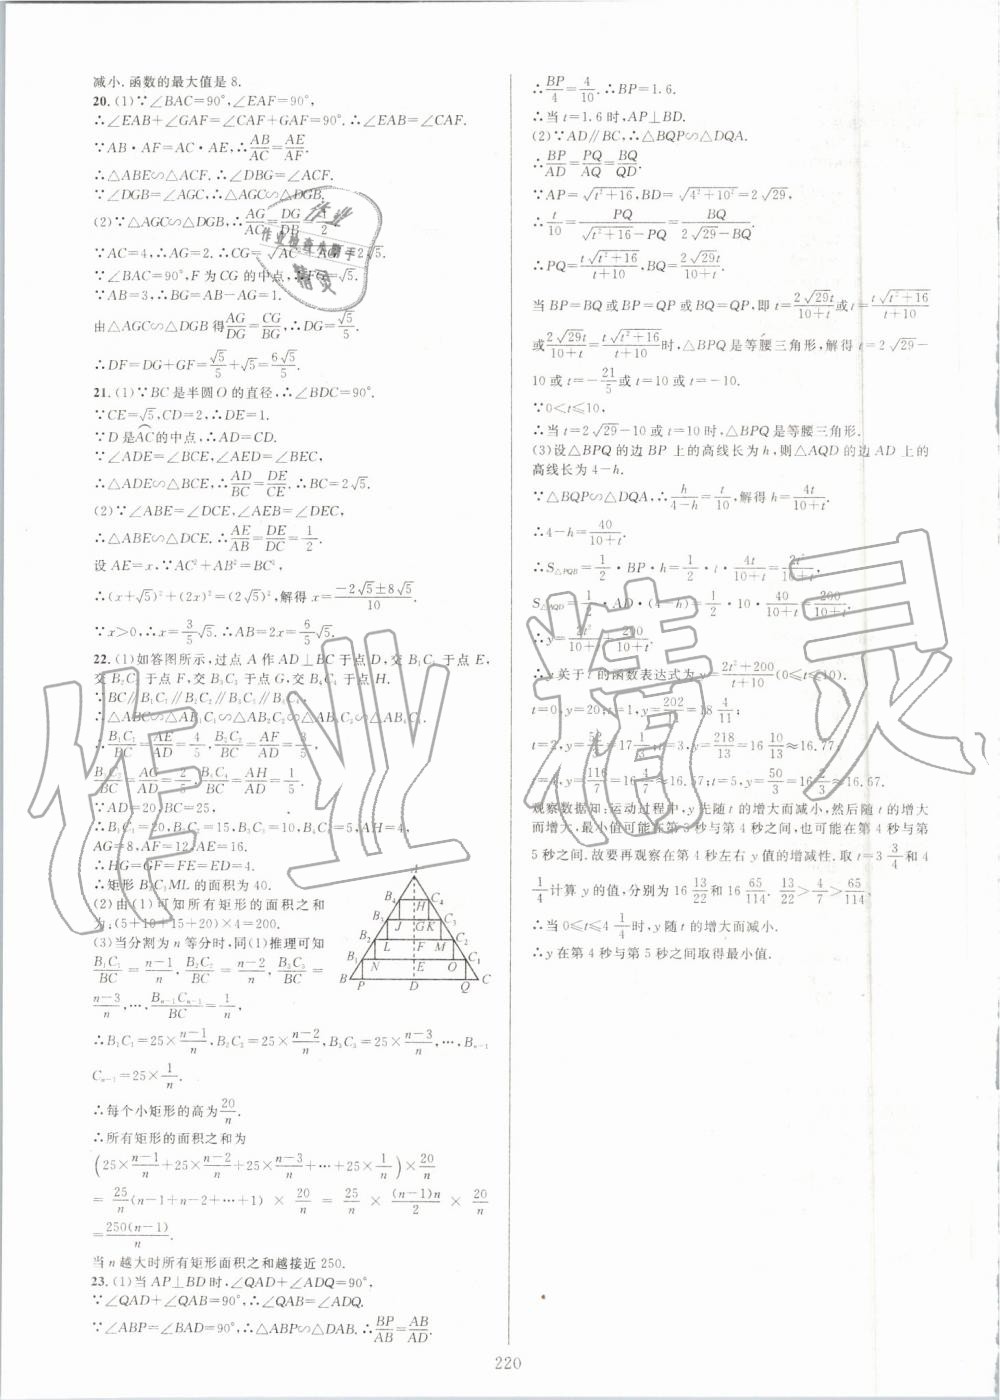 减小.函数的最大值是8.
20.(1)∵∠BAC=90°,∠EAF=90°,
∴∠EAB+∠GAF=∠CAF+GAF=90°.∴∠EAB=∠CAF.
∵AB·AF=AC·AE,∴AB/AC=AE/AF.
∴△ABE∽△ACF.∴∠DBG=∠ACF.
∵∠DGB=∠AGC,∴△AGC∽△DGB.
(2)∵△AGC∽△DGB,∴AG/AC=DG/DB=1/2
∵AC=4,∴AG=2.∴CG=√AC²+AG²=2√5.
∵∠BAC=90°,F为CG的中点,∴
∵AB=3,∴BG=AB-AG=1.
由△AGC∽△DGB得AG/DG=CG/BG,∴DG=√5/5.
∴DF=DG+GF=√5/5+√5=6√5/5.
21.(1)∵BC是半圆O的直径,∴∠BDC=90°.
∵CE=√5,CD=2,∴DE=1.
∵D是AC的中点,∴AD=CD.
∵∠ADE=∠BCE,∠AED=∠BEC,
∴△ADE∽△BCE,∴AD/BC=DE/CE.∴BC=2√5.
(2)∵∠ABE=∠DCE,∠AEB=∠DEC,
∴△ABE∽△DCE.∴AE/AB=DE/DC=1/2.
设AE=x,∵AC²+AB²=BC²,
∴(x+√5)²+(2x)²=(2√5)²,解得x=(-2√5±8√5)/10.
∵x>0,∴x=3/5√5.∴AB=2x=6/5√5.
22.(1)如答图所示,过点A作AD⊥BC于点D,交B₁C₁于点E,
交B₂C₂于点F,交B₃C₃于点G,交B₄C₄于点H.
∵BC∥B₁C₁∥B₂C₂∥B₃C₃∥B₄C₄,
∴△ABC∽△AB₁C₁∽△AB₂C₂∽△AB₃C₃∽△AB₄C₄.
∴B₁C₁/BC=AE/AD=4/5,B₂C₂/BC=AF/AD=3/5,
B₃C₃/BC=AG/AD=2/5,B₄C₄/BC=AH/AD=1/5.
∵AD=20,BC=25,
∴B₁C₁=20,B₂C₂=15,B₃C₃=10,B₄C₄=5,AH=4,
AG=8,AF=12,AE=16.
∴HG=GF=FE=ED=4.
∴矩形B₃C₃ML的面积为40.
(2)由(1)可知所有矩形的面积之和
为:(5+10+15+20)×4=200.
(3)当分割为n等分时,同(1)推理可知
B₁C₁/BC=(n-1)/n,B₂C₂/BC=(n-2)/n,B₃C₃/BC=
(n-3)/n,…,Bₙ₋₁Cₙ₋₁/BC=1/n,
∴B₁C₁=25×(n-1)/n,B₂C₂=25×(n-2)/n,B₃C₃=25×(n-3)/n,…,Bₙ₋₁
Cₙ₋₁=25×1/n.
∴每个小矩形的高为20/n.
∴所有矩形的面积之和为
(25×(n-1)/n+25×(n-2)/n+25×(n-3)/n+…+25×1/n)×20/n
=25/n(n-1+n-2+…+1)×20/n=25/n×(n-1)n/2×20/n
=250(n-1)/n.
当n越大时所有矩形面积之和越接近250.
A
B₄ H C₄
B₃ J G K C₃
B₂ L F M C₂
B₁ N E O C₁
B P D Q C
23.(1)当AP⊥BD时,∠QAD+∠ADQ=90°,
∵∠QAD+∠QAB=90°,∴∠QAB=∠ADQ.
∵∠ABP=∠BAD=90°,∴△ABP∽△DAB.∴BP/AB=AB/AD.
∴BP/4=4/10.∴BP=1.6.
∴当t=1.6时,AP⊥BD.
(2)∵AD∥BC,∴△BQP∽△DQA.
∴BP/AD=PQ/AQ=BQ/QD.
∵AP=√t²+16,BD=√4²+10²=2√29,
∴t/10=PQ/(√t²+16-PQ)=BQ/(2√29-BQ).
∴PQ=t√t²+16/(t+10),BQ=2√29t/(t+10).
当BP=BQ或BP=QP或BQ=QP,即t=2√29t/(10+t)或t=t√t²+16/(t+10)
或2√29t/(10+t)=t√t²+16/(10+t)时,△BPQ是等腰三角形,解得t=2√29-
10或t=-21/5或t=10或t=-10.
∵0<t≤10,
∴当t=2√29-10或t=10时,△BPQ是等腰三角形.
(3)设△BPQ的边BP上的高线长为h,则△AQD的边AD上的
高线长为4-h.
∵△BQP∽△DQA,∴h/(4-h)=t/10,解得h=4t/(10+t).
∴4-h=40/(10+t).
∴S△PQB=1/2·BP·h=1/2·t·4t/(10+t)=2t²/(10+t),
S△AQD=1/2·AD·(4-h)=1/2·10·40/(10+t)=200/(10+t).
∴y=2t²/(10+t)+200/(10+t).
∴y关于t的函数表达式为y=(2t²+200)/(t+10)(0≤t≤10).
t=0,y=20;t=1,y=202/11=18 4/11;
t=2,y=52/3=17 1/3;t=3,y=218/13=16 10/13≈16.77;
t=4,y=116/7=16 4/7≈16.57;t=5,y=50/3=16 2/3≈16.67.
观察数据知:运动过程中,y先随t的增大而减小,然后随t的增大
而增大,最小值可能在第3秒与第4秒之间,也可能在第4秒与第
5秒之间.故要再观察在第4秒左右y值的增减性.取t=3 3/4和4
1/4计算y的值,分别为16 13/22和16 65/114.13/22>4/7>65/114,
∴当0≤t≤4 1/4时,y随t的增大而减小.
∴y在第4秒与第5秒之间取得最小值.
作业
作业检查小助手
精灵
作业精灵
220